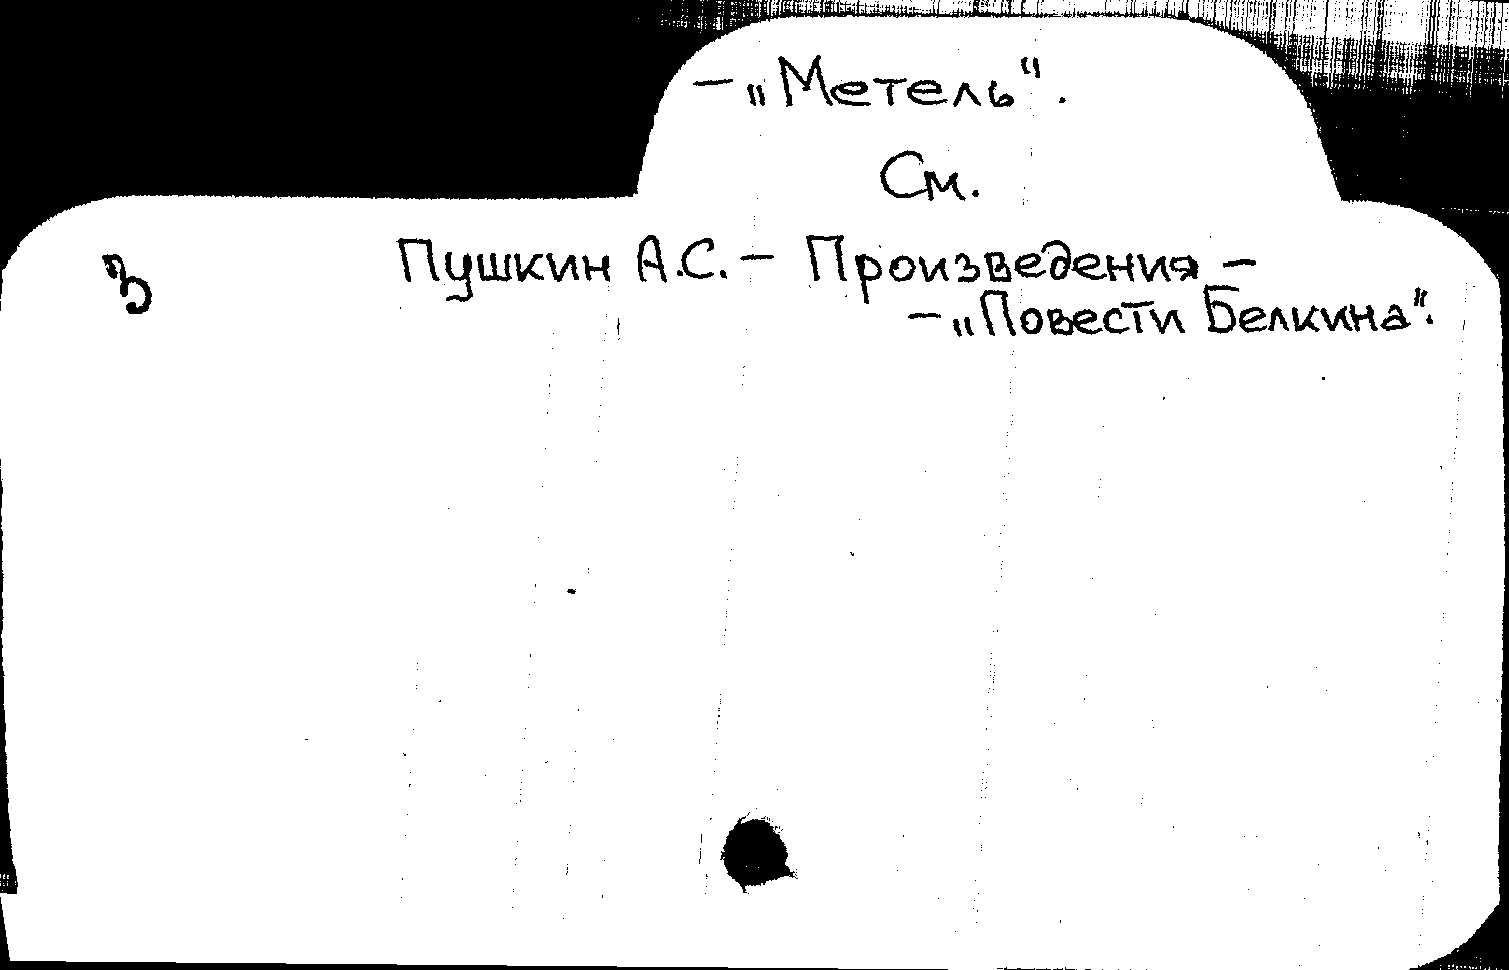 – „Метель“.
См.
Пушкин А.С. – Произведения –
– „Повести Белкина“.